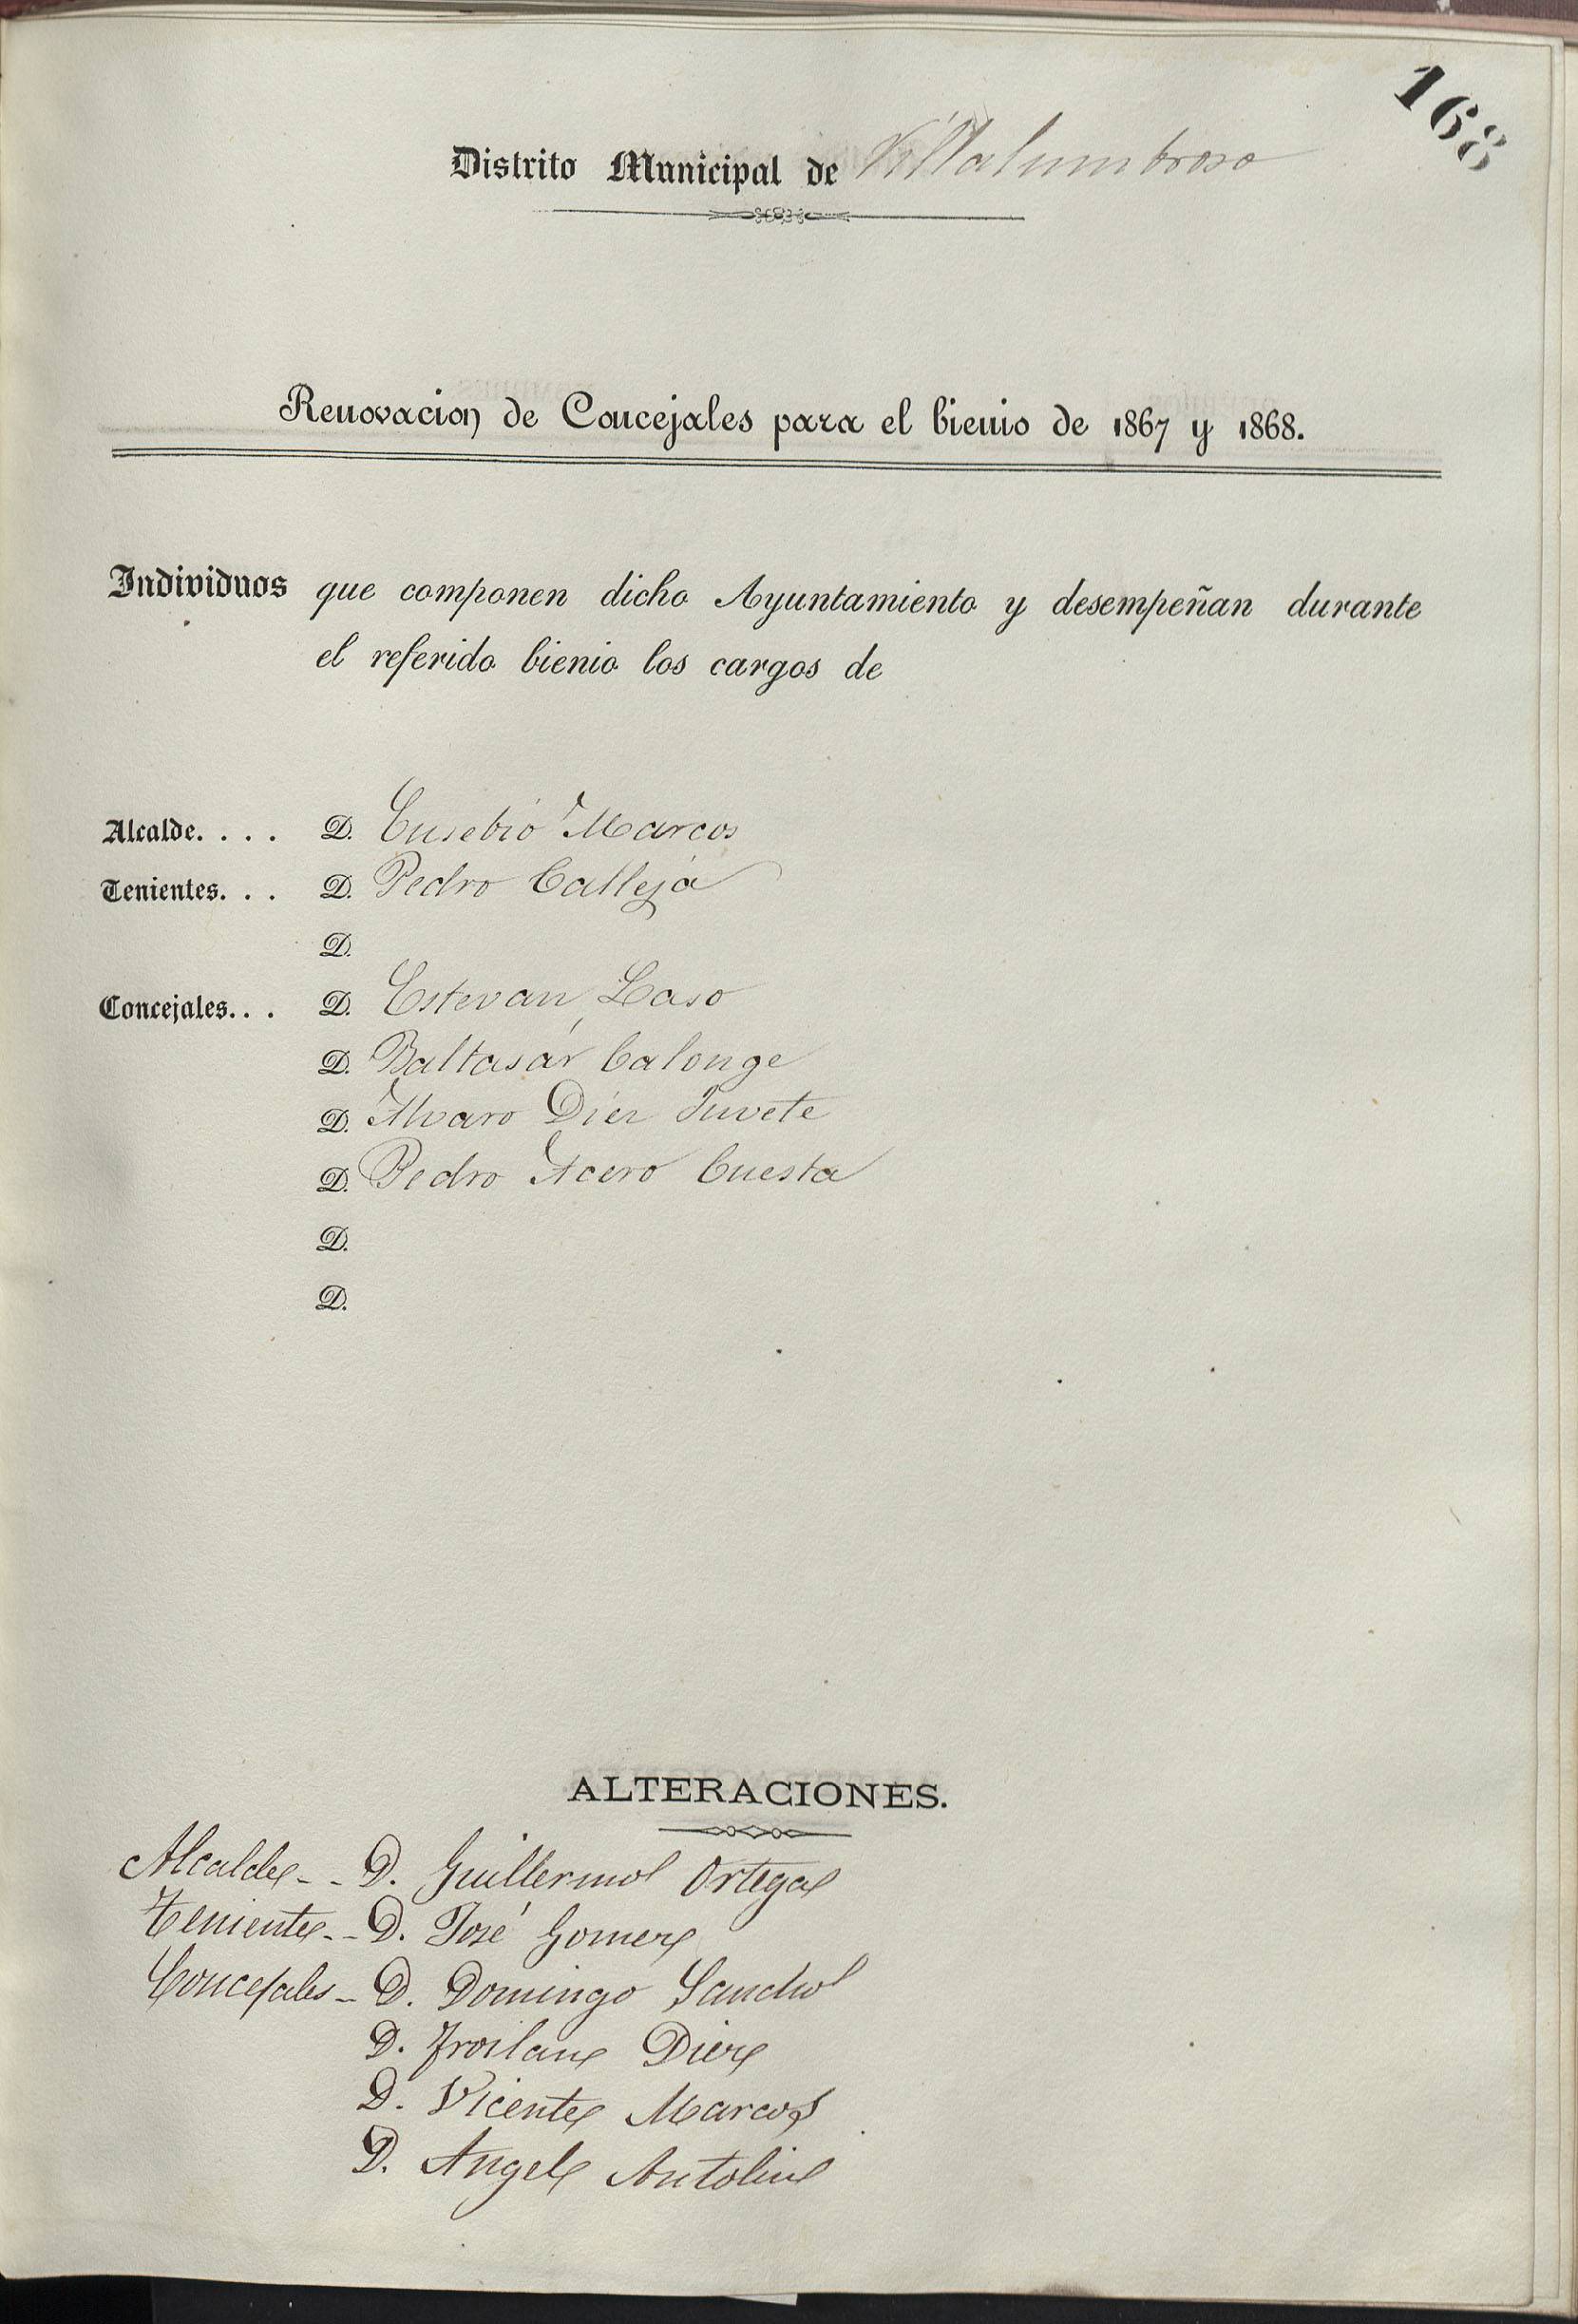 168
Distrito Municipal de Villalumbroso
Renovacion de Concejales para el bienio de 1867 y 1868.
Individuos que componen dicho Ayuntamiento y desempeñan durante
el referido bienio los cargos de
Alcalde. . . . D. Eusebio Marcos
Tenientes. . . D. Pedro Calleja
D.
Concejales. . . D. Estevan Laso
D. Baltasár Calonge
D. Alvaro Diez
D. Pedro Acero Cuesta
D.
D.
ALTERACIONES.
Alcalde - - D. Guillermo Ortega
Teniente - - D. José Gomez
Concejales - D. Domingo Sancho
D. Froilan Diez
D. Vicente Marcos
D. Angel Antolin